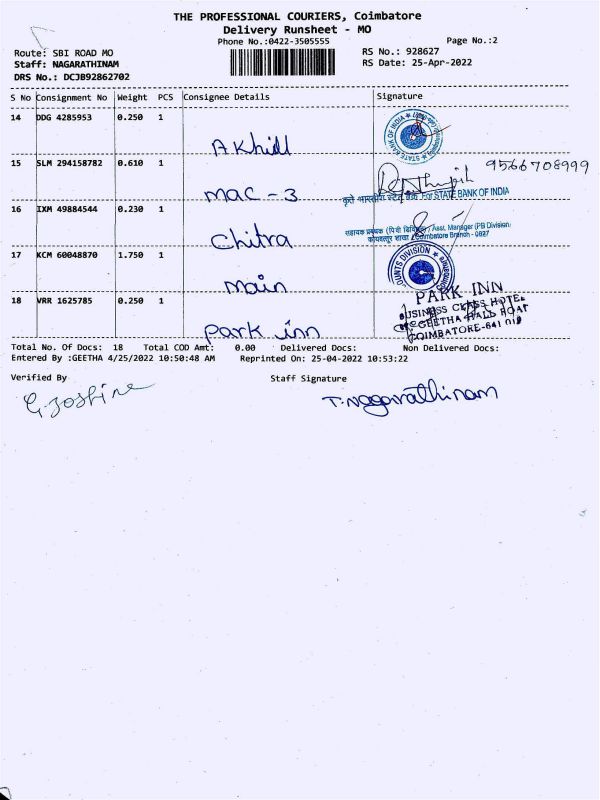 THE PROFESSIONAL COURIERS, Coimbatore
Delivery Runsheet - MO
Phone No.:0422-3505555
Page No.:2
Route: SBI ROAD MO
RS No.: 928627
Staff: NAGARATHINAM
RS Date: 25-Apr-2022
DRS No.: DCJB92862702
S No Consignment No Weight PCS Consignee Details Signature
14 DDG 4285953 0.250 1
Akhill
STATE BANK OF INDIA
15 SLM 294158782 0.610 1
9566708999
mac - 3
For STATE BANK OF INDIA
16 IXM 49884544 0.230 1
Chitra
Asst. Manager (PB Division)
Coimbatore Branch - 0827
17 KCM 60048870 1.750 1
main
ACCOUNTS DIVISION
18 VRR 1625785 0.250 1
Park inn
PARK INN
BUSINESS CLASS HOTEL
GEETHA HALL ROAD
COIMBATORE-641 018
Total No. Of Docs: 18 Total COD Amt: 0.00 Delivered Docs: Non Delivered Docs:
Entered By :GEETHA 4/25/2022 10:50:48 AM Reprinted On: 25-04-2022 10:53:22
Verified By Staff Signature
G. Joshine T. Nagarathinam